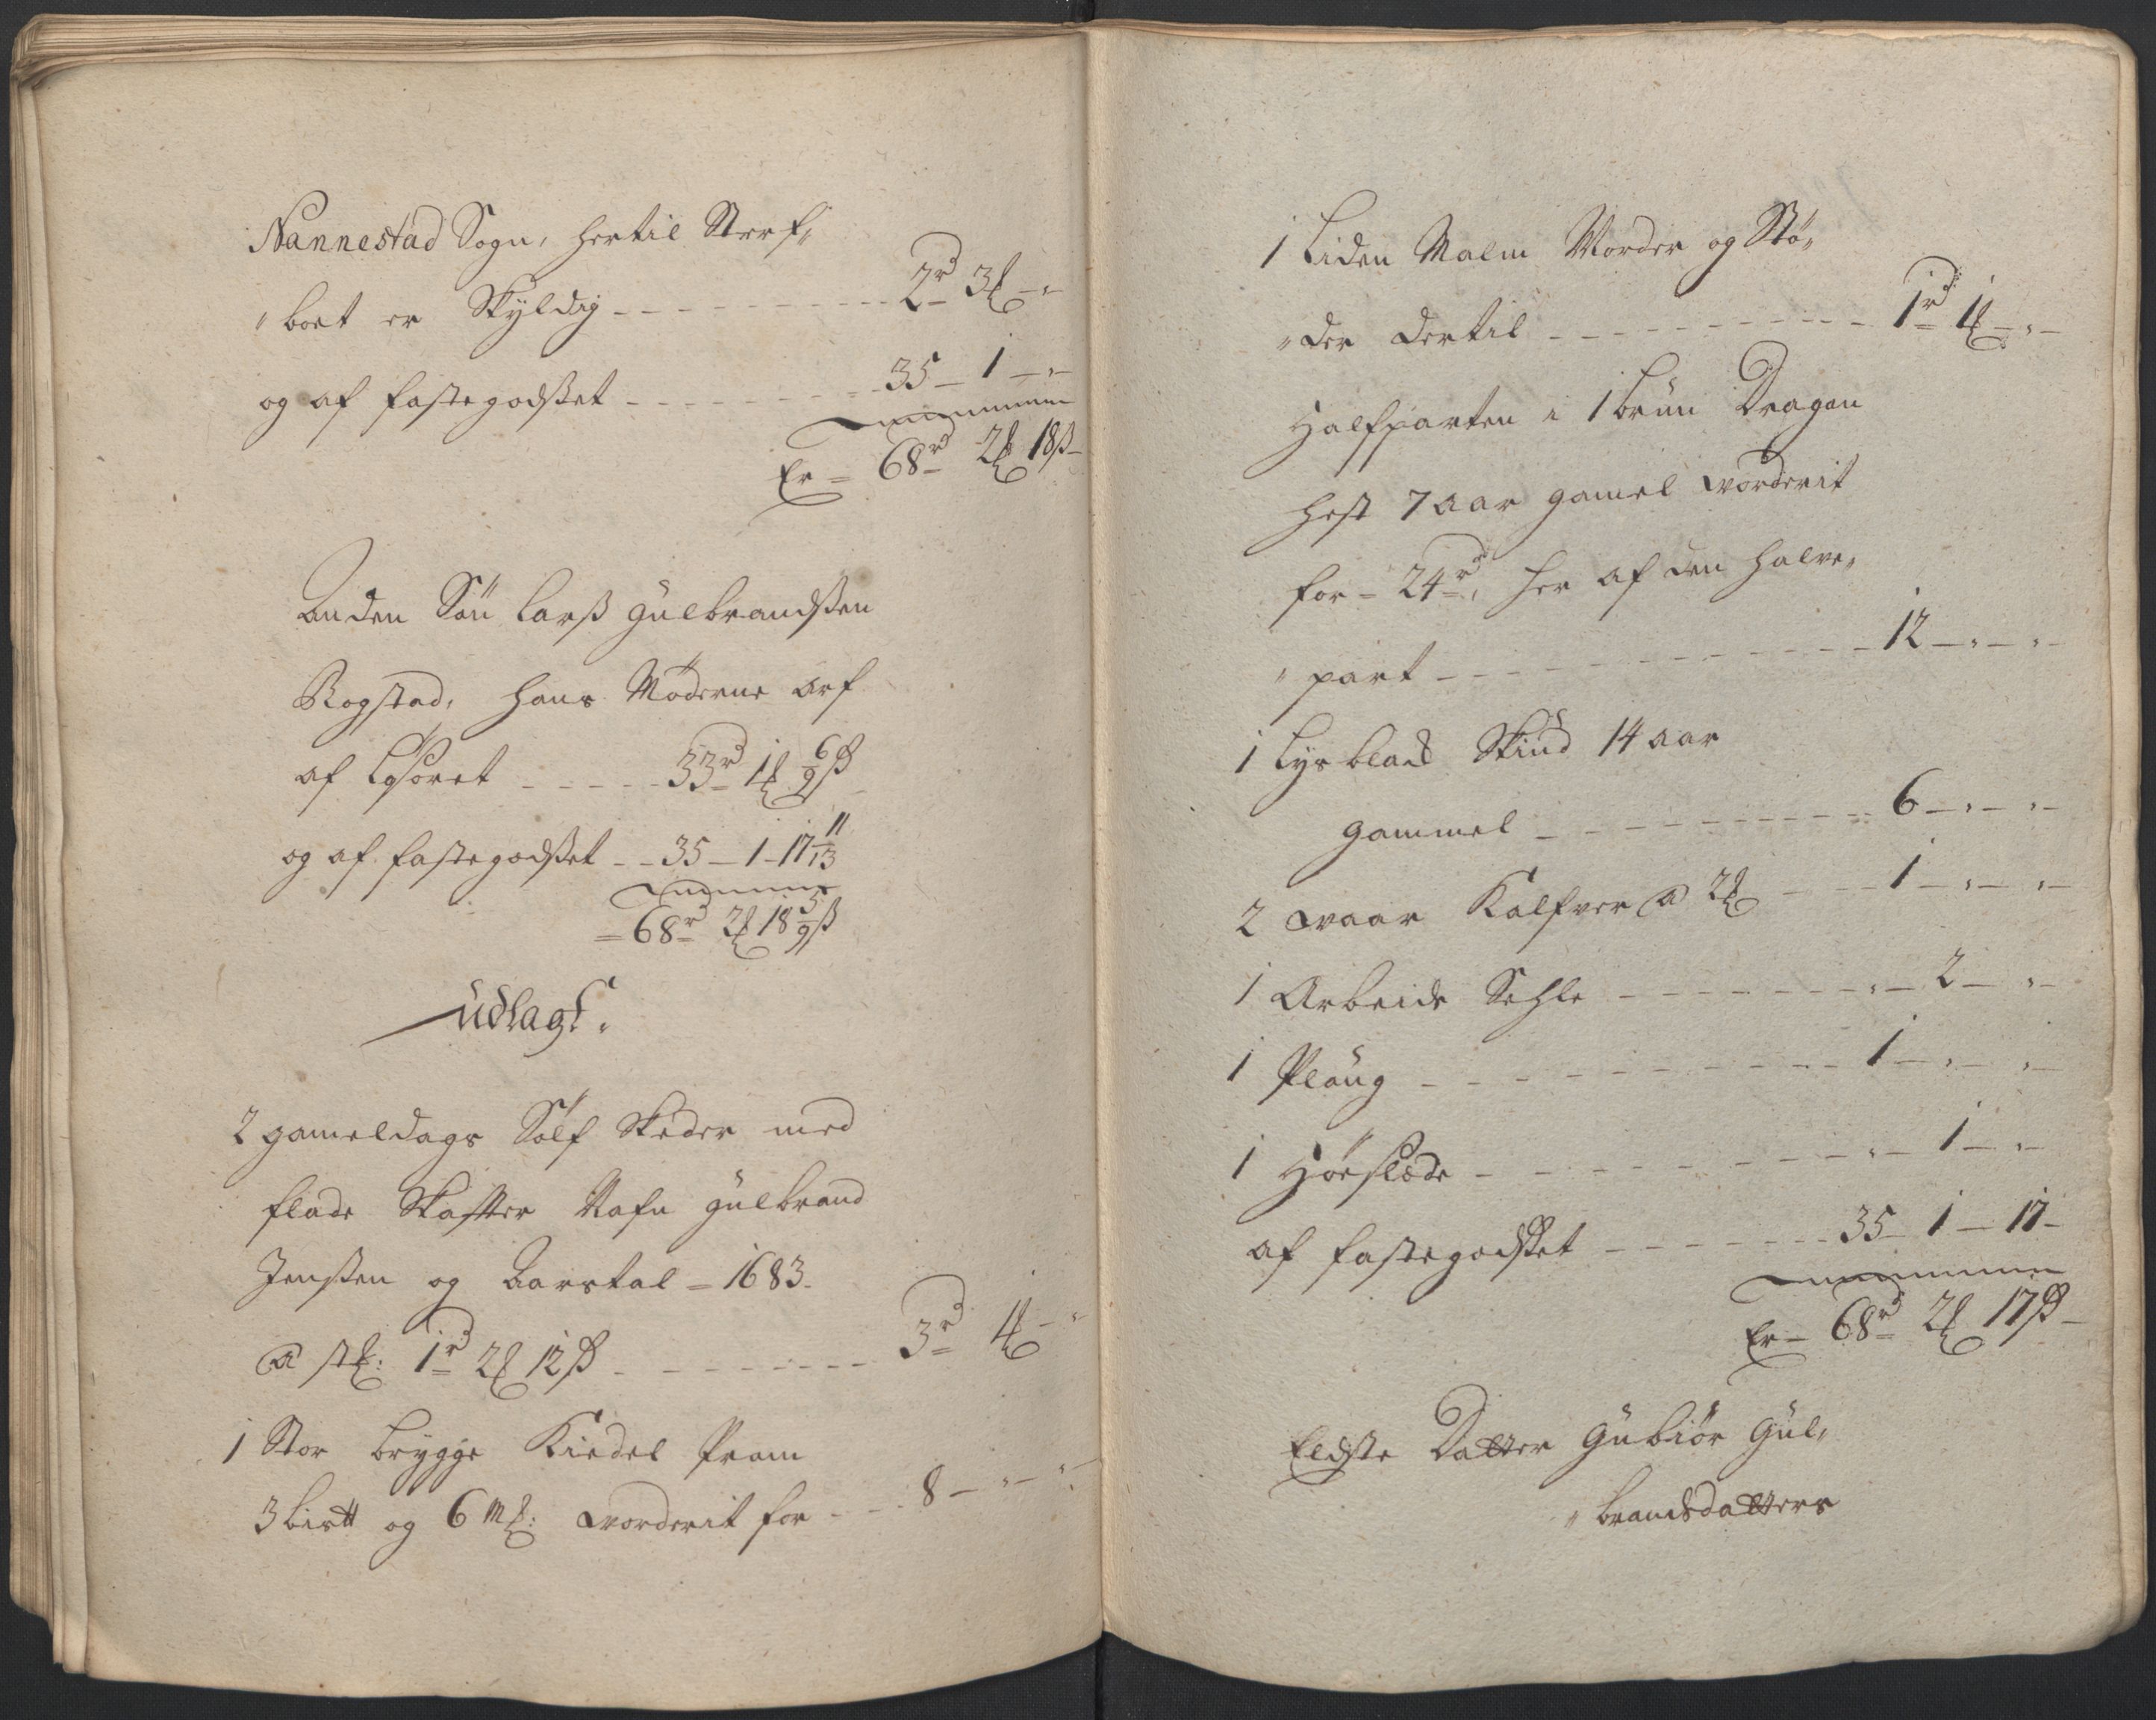 Nannestad Sogn, hertil Sterf„
„boet er Skyldig - - - 2rd 3 ℔ - "
og af fastegodsset - - - 35 - 1 - "
Er = 68rd 2 ℔ 18 ß -
Anden Søn Larss Gulbrandssen
Rogstad, hans Møderne arf
af Løsøret - - - 33rd 1 ℔ 6/9 ß
og af fastegodsset - - 35 - 1 - 17 11/13
= 68rd 2 ℔ 18 5/9 ß
Udlagt.
2 gameldags Sølf Skeder med
flade Skafter Nafn Gulbrand
Jenssen og Aarstal = 1683.
a st: 1rd 2 ℔ 12 ß - - - 3rd 1 ℔ - "
1 Stor brygge Kiedel
3 bis℔ og 6 m℔: vorderit for - - 8 - " - "
1 Liden Malm Morder og Stø„
„der dertil - - - 1rd 1 ℔ - " -
Halfparten i 1 brun Dragon
Hest 7 aar gamel vorderit
for = 24rd, her af den halve„
„part - - - 12 - " - " -
1 Lys blakd Skiud 14 aar
gammel - - - 6 - " - " -
2 vaar Kalfver a 2 ℔ - - - 1 - " - " -
1 Arbeids Sehle - - - " - 2 - " -
1 Ploug - - - 1 - " - " -
1 Høeslæde - - - " - 1 - " -
af fastegodsset - - - 35 - 1 - 17 -
Er = 68rd 2 ℔ 17 ß -
Eldste Datter Gubiør Gul„
„brandsdatters